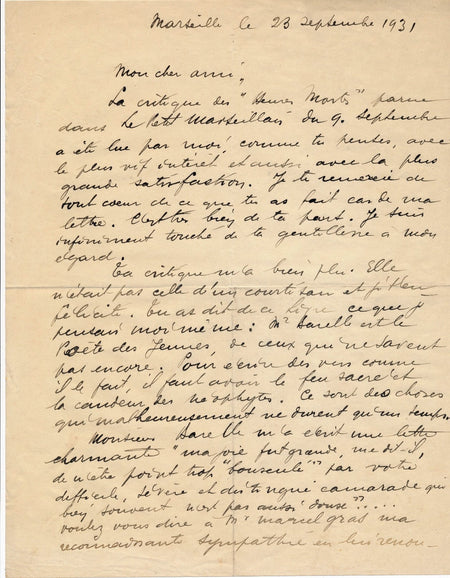 Marseille le 23 septembre 1931
Mon cher ami,
La critique des "Heures Mortes" parue
dans Le Petit Marseillais du 9 septembre
a été lue par moi, comme tu penses, avec
le plus vif intérêt et aussi avec la plus
grande satisfaction. Je te remercie de
tout coeur de ce que tu as fait cas de ma
lettre. C'est très bien de ta part. Je suis
infiniment touché de ta gentillesse à mon
égard.
Ta critique m'a bien plu. Elle
n'était pas celle d'un courtisan et je t'en
félicite. Tu as dit de ce livre ce que je
pensais moi même : Mr Barelle est le
Poète des Jeunes, de ceux qui ne savent
pas encore. Pour écrire des vers comme
il le fait, il faut avoir le feu sacré et
la candeur des néophytes. Ce sont des choses
qui malheureusement ne durent qu'un temps.
Monsieur Barelle m'a écrit une lettre
charmante "ma vie fut grande, me dit-il,
de n'être point trop "bousculé" par votre
difficile, sévère et distingué camarade qui
bien souvent n'est pas aussi doux"....
voulez vous dire à Mr Marcel Gras ma
reconnaissante sympathie en lui renou-